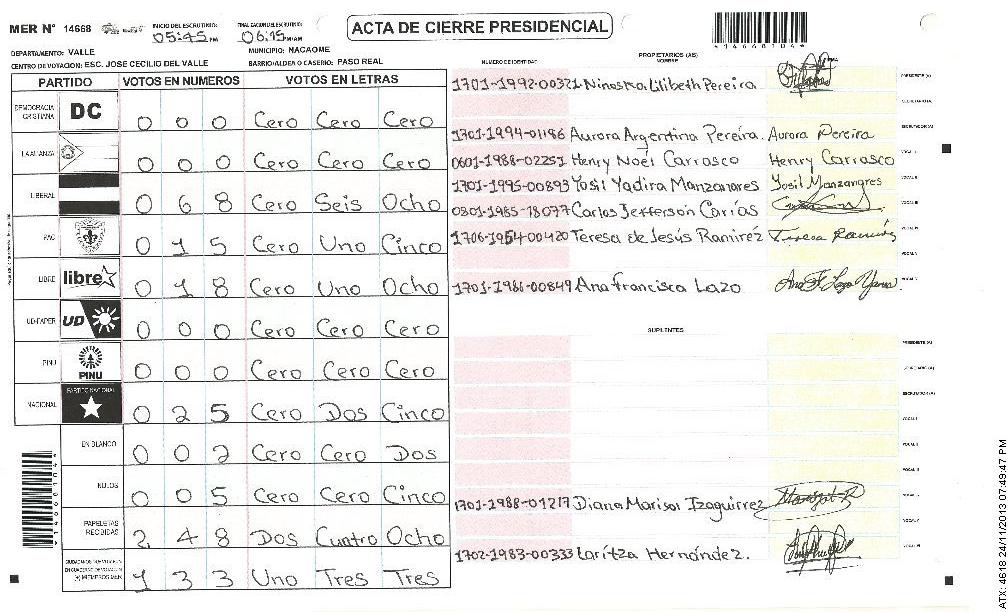 MER N° 14668
INICIO DEL ESCRUTINIO: 05:45 PM
FINALIZACION DEL ESCRUTINIO: 06:15
ACTA DE CIERRE PRESIDENCIAL
DEPARTAMENTO: VALLE
MUNICIPIO: NACAOME
CENTRO DE VOTACION: ESC. JOSE CECILIO DEL VALLE
BARRIO/ALDEA O CASERIO: PASO REAL
PARTIDO VOTOS EN NUMEROS VOTOS EN LETRAS
DEMOCRACIA CRISTIANA DC 0 0 0 Cero Cero Cero
LA ALIANZA 0 0 0 Cero Cero Cero
LIBERAL 0 6 8 Cero Seis Ocho
PAC 0 1 5 Cero Uno Cinco
LIBRE libre 0 1 8 Cero Uno Ocho
UD-FAPER UD 0 0 0 Cero Cero Cero
PINU PINU 0 0 0 Cero Cero Cero
NACIONAL PARTIDO NACIONAL 0 2 5 Cero Dos Cinco
EN BLANCO 0 0 2 Cero Cero Dos
NULOS 0 0 5 Cero Cero Cinco
PAPELETAS RECIBIDAS 2 4 8 Dos Cuatro Ocho
1 3 3 Uno Tres Tres
NUMERO DE IDENTIDAD
PROPIETARIOS (AS)
NOMBRE
1701-1992-00321 Ninoska Lilibeth Pereira PRESIDENTE (A)
SECRETARIO/A
1701-1994-01186 Aurora Argentina Pereira. Aurora Pereira ESCRUTADOR (A)
0601-1988-02251 Henry Noel Carrasco Henry Carrasco VOCAL I
1701-1995-00893 Yosil Yadira Manzanares Yosil Manzanares VOCAL II
0801-1985-18077 Carlos Jefferson Carías VOCAL III
1706-1954-00420 Teresa de Jesús Ramirez Teresa Ramirez VOCAL IV
1701-1986-00849 Ana Francisca Lazo
SUPLENTES
PRESIDENTE (A)
SECRETARIO (A)
ESCRUTADOR (A)
VOCAL I
VOCAL II
VOCAL III
1701-1988-01217 Diana Marisol Izaguirrez
1702-1983-00333 Laritza Hernández.
14668104
ATX: 4618 24/11/2013 07:49:47 PM